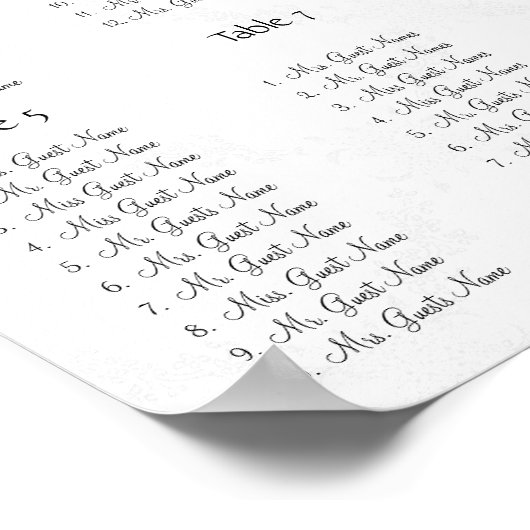 10.
11. M
12. Mrs. Guest Name
Name
e 5
s. Guest Name
Mr. Guest Name
3. Miss Guest Name
4. Miss Guest Name
5. Mr. Guests Name
6. Mrs. Guest Name
7. Mr. Guest Name
8. Miss. Guest Name
9. Mr. Guest Name
Mrs. Guests Name
Table 7
1. Mrs. Guest Names
2. Mr. Guest Names
3. Miss Guest Names
4. Miss Guest Names
5. Mr. Guests
6. Mrs. Guest
7. Mr. Gu